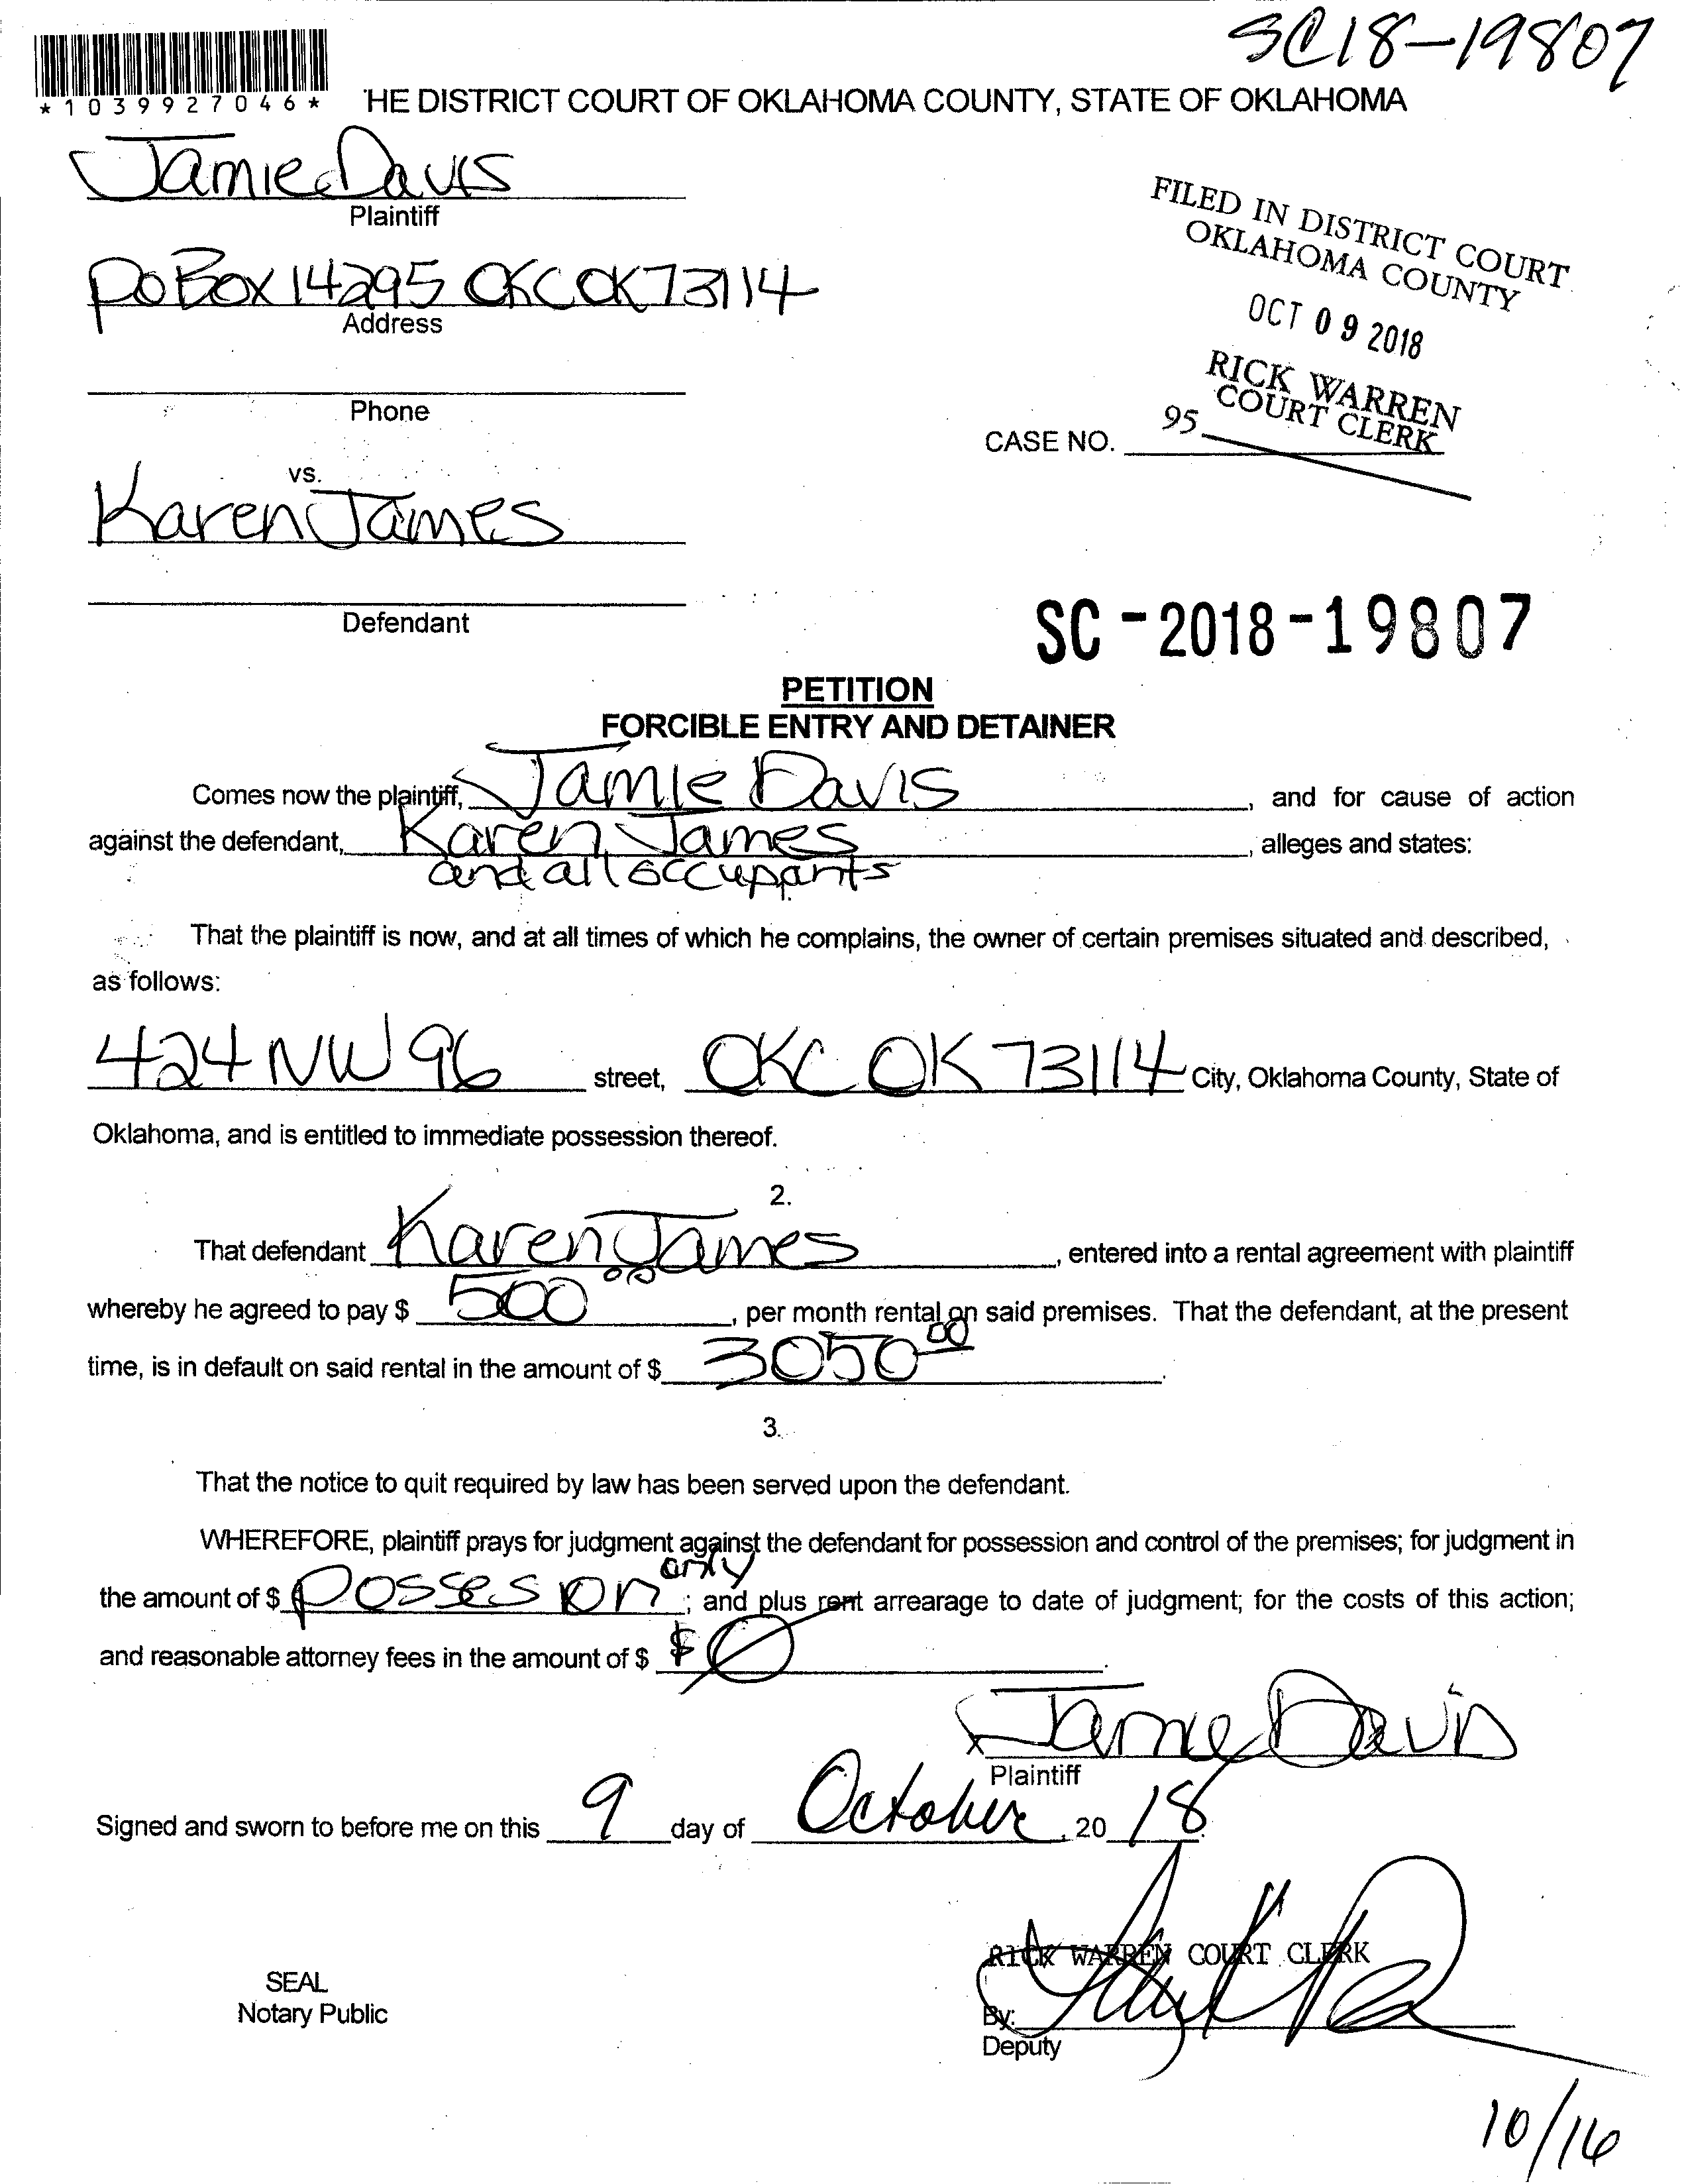 SC18-19807
*1039927046*
'HE DISTRICT COURT OF OKLAHOMA COUNTY, STATE OF OKLAHOMA
Jamie Davis
Plaintiff
PO Box 14295 OKC OK 73114
Address
FILED IN DISTRICT COURT
OKLAHOMA COUNTY
OCT 09 2018
RICK WARREN
COURT CLERK
95
Phone
CASE NO.
vs.
Karen James
Defendant
SC-2018-19807
PETITION
FORCIBLE ENTRY AND DETAINER
Comes now the plaintiff, Jamie Davis, and for cause of action
against the defendant, Karen James, alleges and states:
and all occupants
That the plaintiff is now, and at all times of which he complains, the owner of certain premises situated and described,
as follows:
424 NW 96 street, OKC OK 73114 City, Oklahoma County, State of
Oklahoma, and is entitled to immediate possession thereof.
2.
That defendant Karen James, entered into a rental agreement with plaintiff
whereby he agreed to pay $ 500 00, per month rental on said premises. That the defendant, at the present
time, is in default on said rental in the amount of $ 3050 00.
3.
That the notice to quit required by law has been served upon the defendant.
WHEREFORE, plaintiff prays for judgment against the defendant for possession and control of the premises; for judgment in
the amount of $ Possesion only; and plus rent arrearage to date of judgment; for the costs of this action;
and reasonable attorney fees in the amount of $ $0.
Jamie Davis
Plaintiff
Signed and sworn to before me on this 9 day of October, 20 18.
RICK WARREN COURT CLERK
SEAL
Notary Public
By:
Deputy
10/16